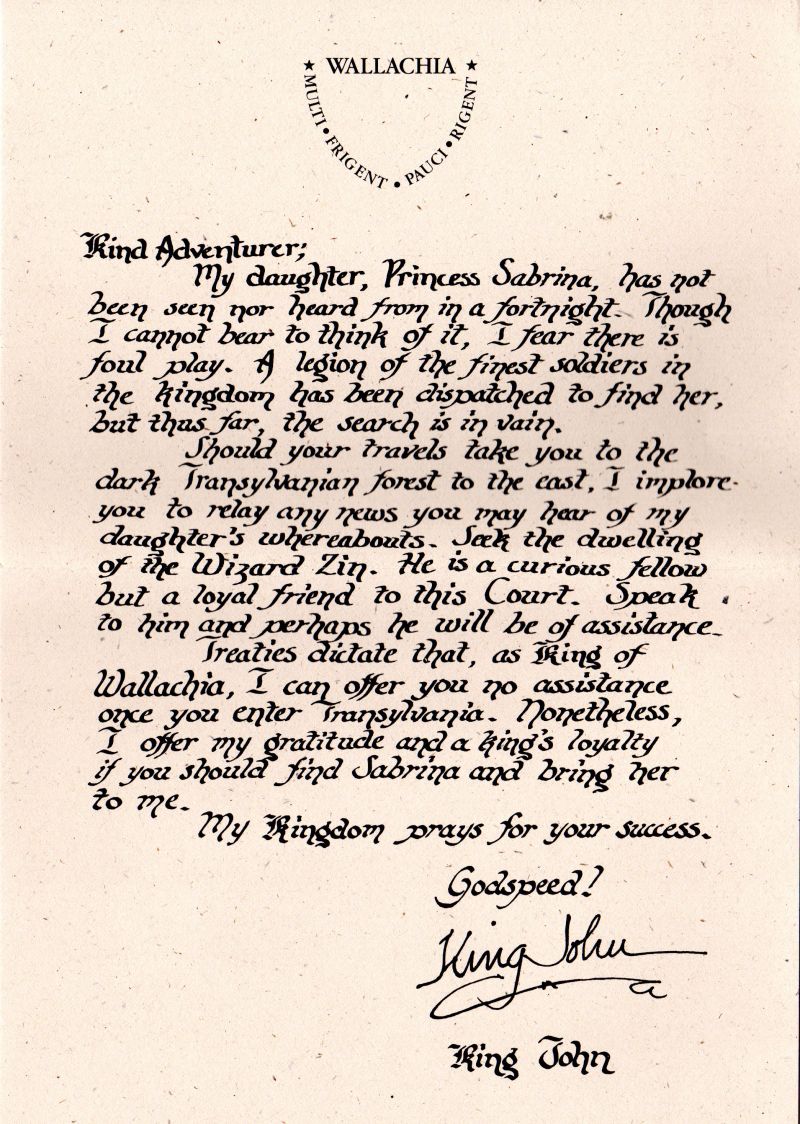 ★ WALLACHIA ★
MULTI • FRIGENT • PAUCI • RIGENT
Kind Adventurer;
My daughter, Princess Sabrina, has not
been seen nor heard from in a fortnight. Though
I cannot bear to think of it, I fear there is
foul play. A legion of the finest soldiers in
the kingdom has been dispatched to find her,
but thus far, the search is in vain.
Should your travels take you to the
dark Transylvanian forest to the east, I implore
you to relay any news you may hear of my
daughter's whereabouts. Seek the dwelling
of the Wizard Zin. He is a curious fellow
but a loyal friend to this Court. Speak
to him and perhaps he will be of assistance.
Treaties dictate that, as King of
Wallachia, I can offer you no assistance
once you enter Transylvania. Nonetheless,
I offer my gratitude and a king's loyalty
if you should find Sabrina and bring her
to me.
My Kingdom prays for your success.
Godspeed!
King John
King John